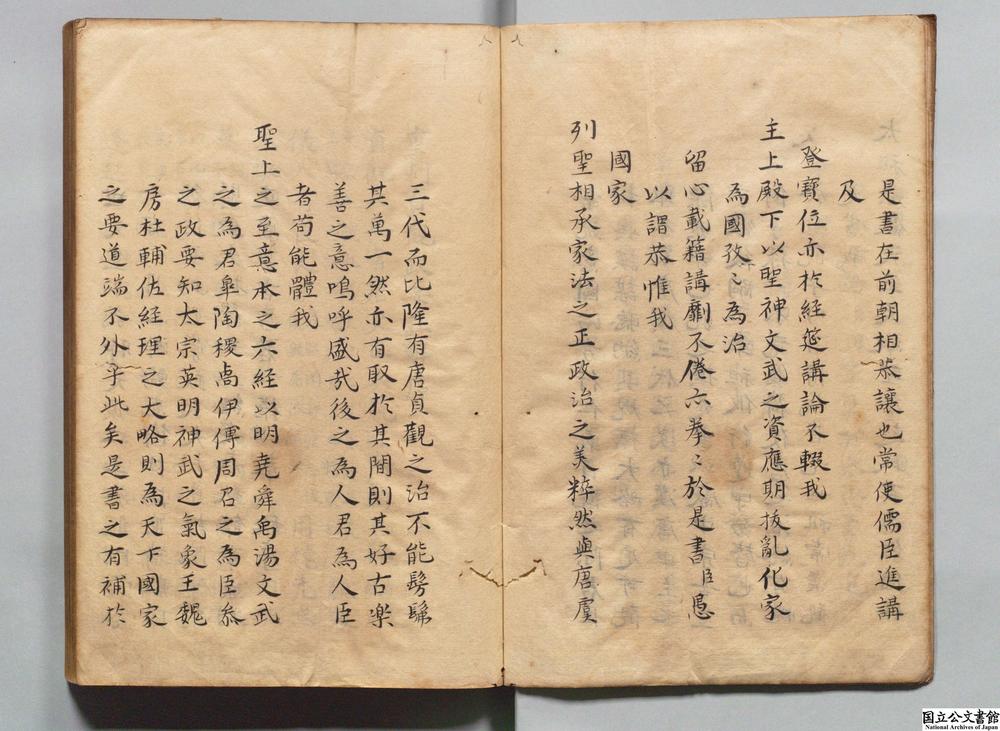 是書在前朝相恭讓也常使儒臣進講
及
登寶位亦於経筵講論不輟我
主上殿下以聖神文武之資應期拔亂化家
為國孜〻為治
留心載籍講劘不倦六拳〻於是書臣愚
以謂恭惟我
國家
列聖相承家法之正政治之美粹然與唐虞
三代而比隆有唐貞觀之治不能髣髴
其萬一然亦有取於其間則其好古樂
善之意嗚呼盛哉後之為人君為人臣
者苟能體我
聖上之至意本之六経以明堯舜禹湯文武
之為君皐陶稷卨伊傅周召之為臣叅
之政要知太宗英明神武之氣象王魏
房杜輔佐経理之大略則為天下國家
之要道端不外乎此矣是書之有補於
国立公文書館
National Archives of Japan